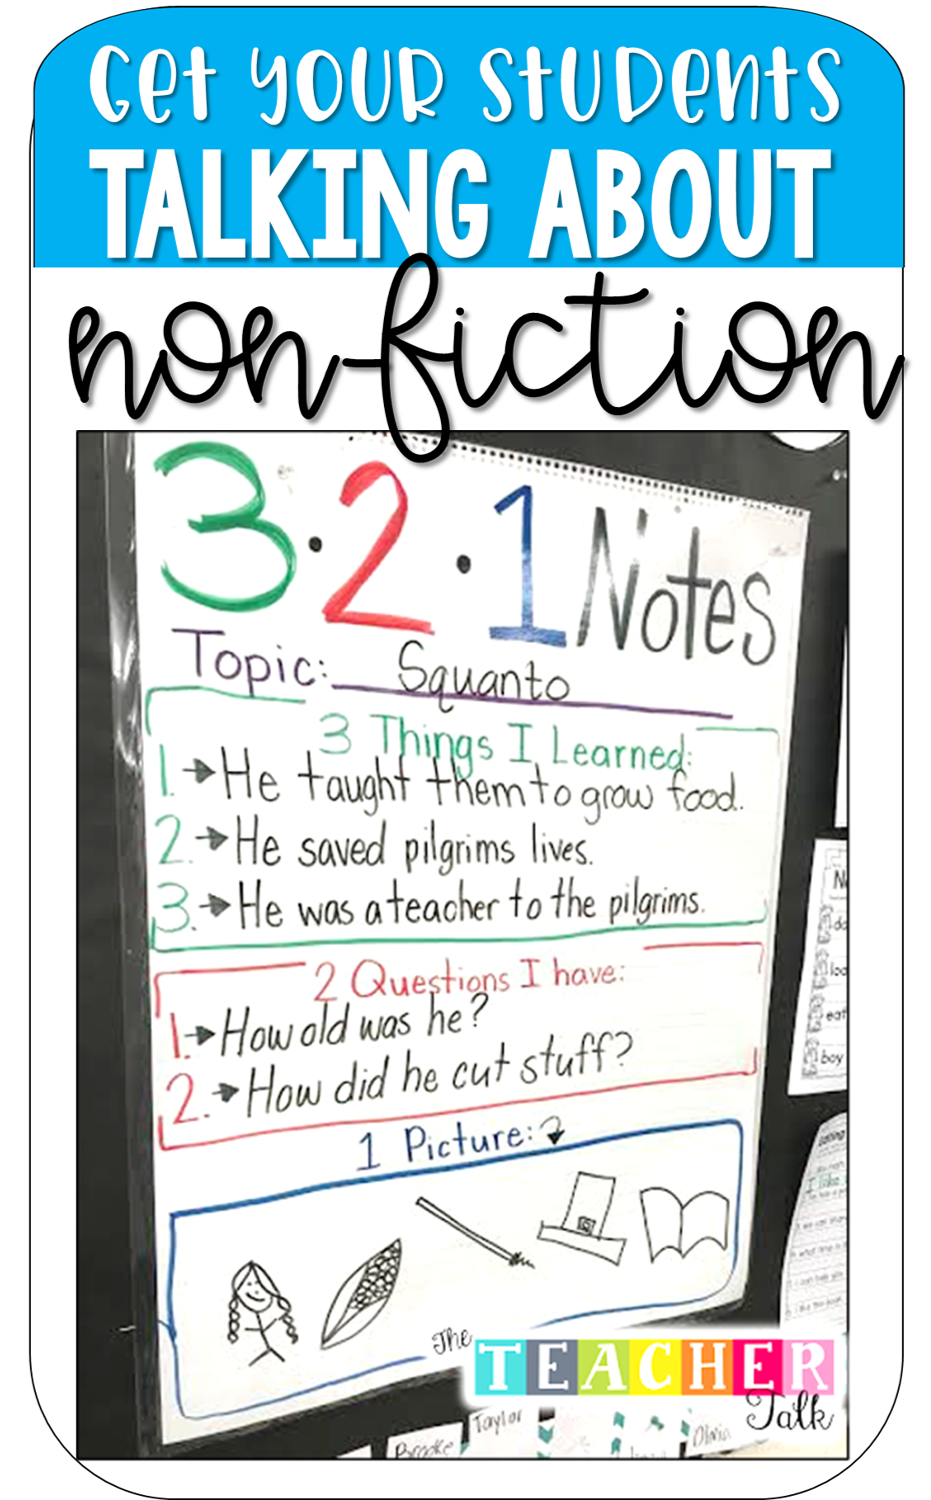 Get YOUR STUDENTS
TALKING ABOUT
non-fiction
3·2·1 Notes
Topic: Squanto
3 Things I Learned:
1. → He taught them to grow food.
2. → He saved pilgrims lives.
3. → He was a teacher to the pilgrims.
2 Questions I have:
1. → How old was he?
2. → How did he cut stuff?
1 Picture:
The
TEACHER
Talk
Brooke
Taylor
Olivia
boy
eat
I like